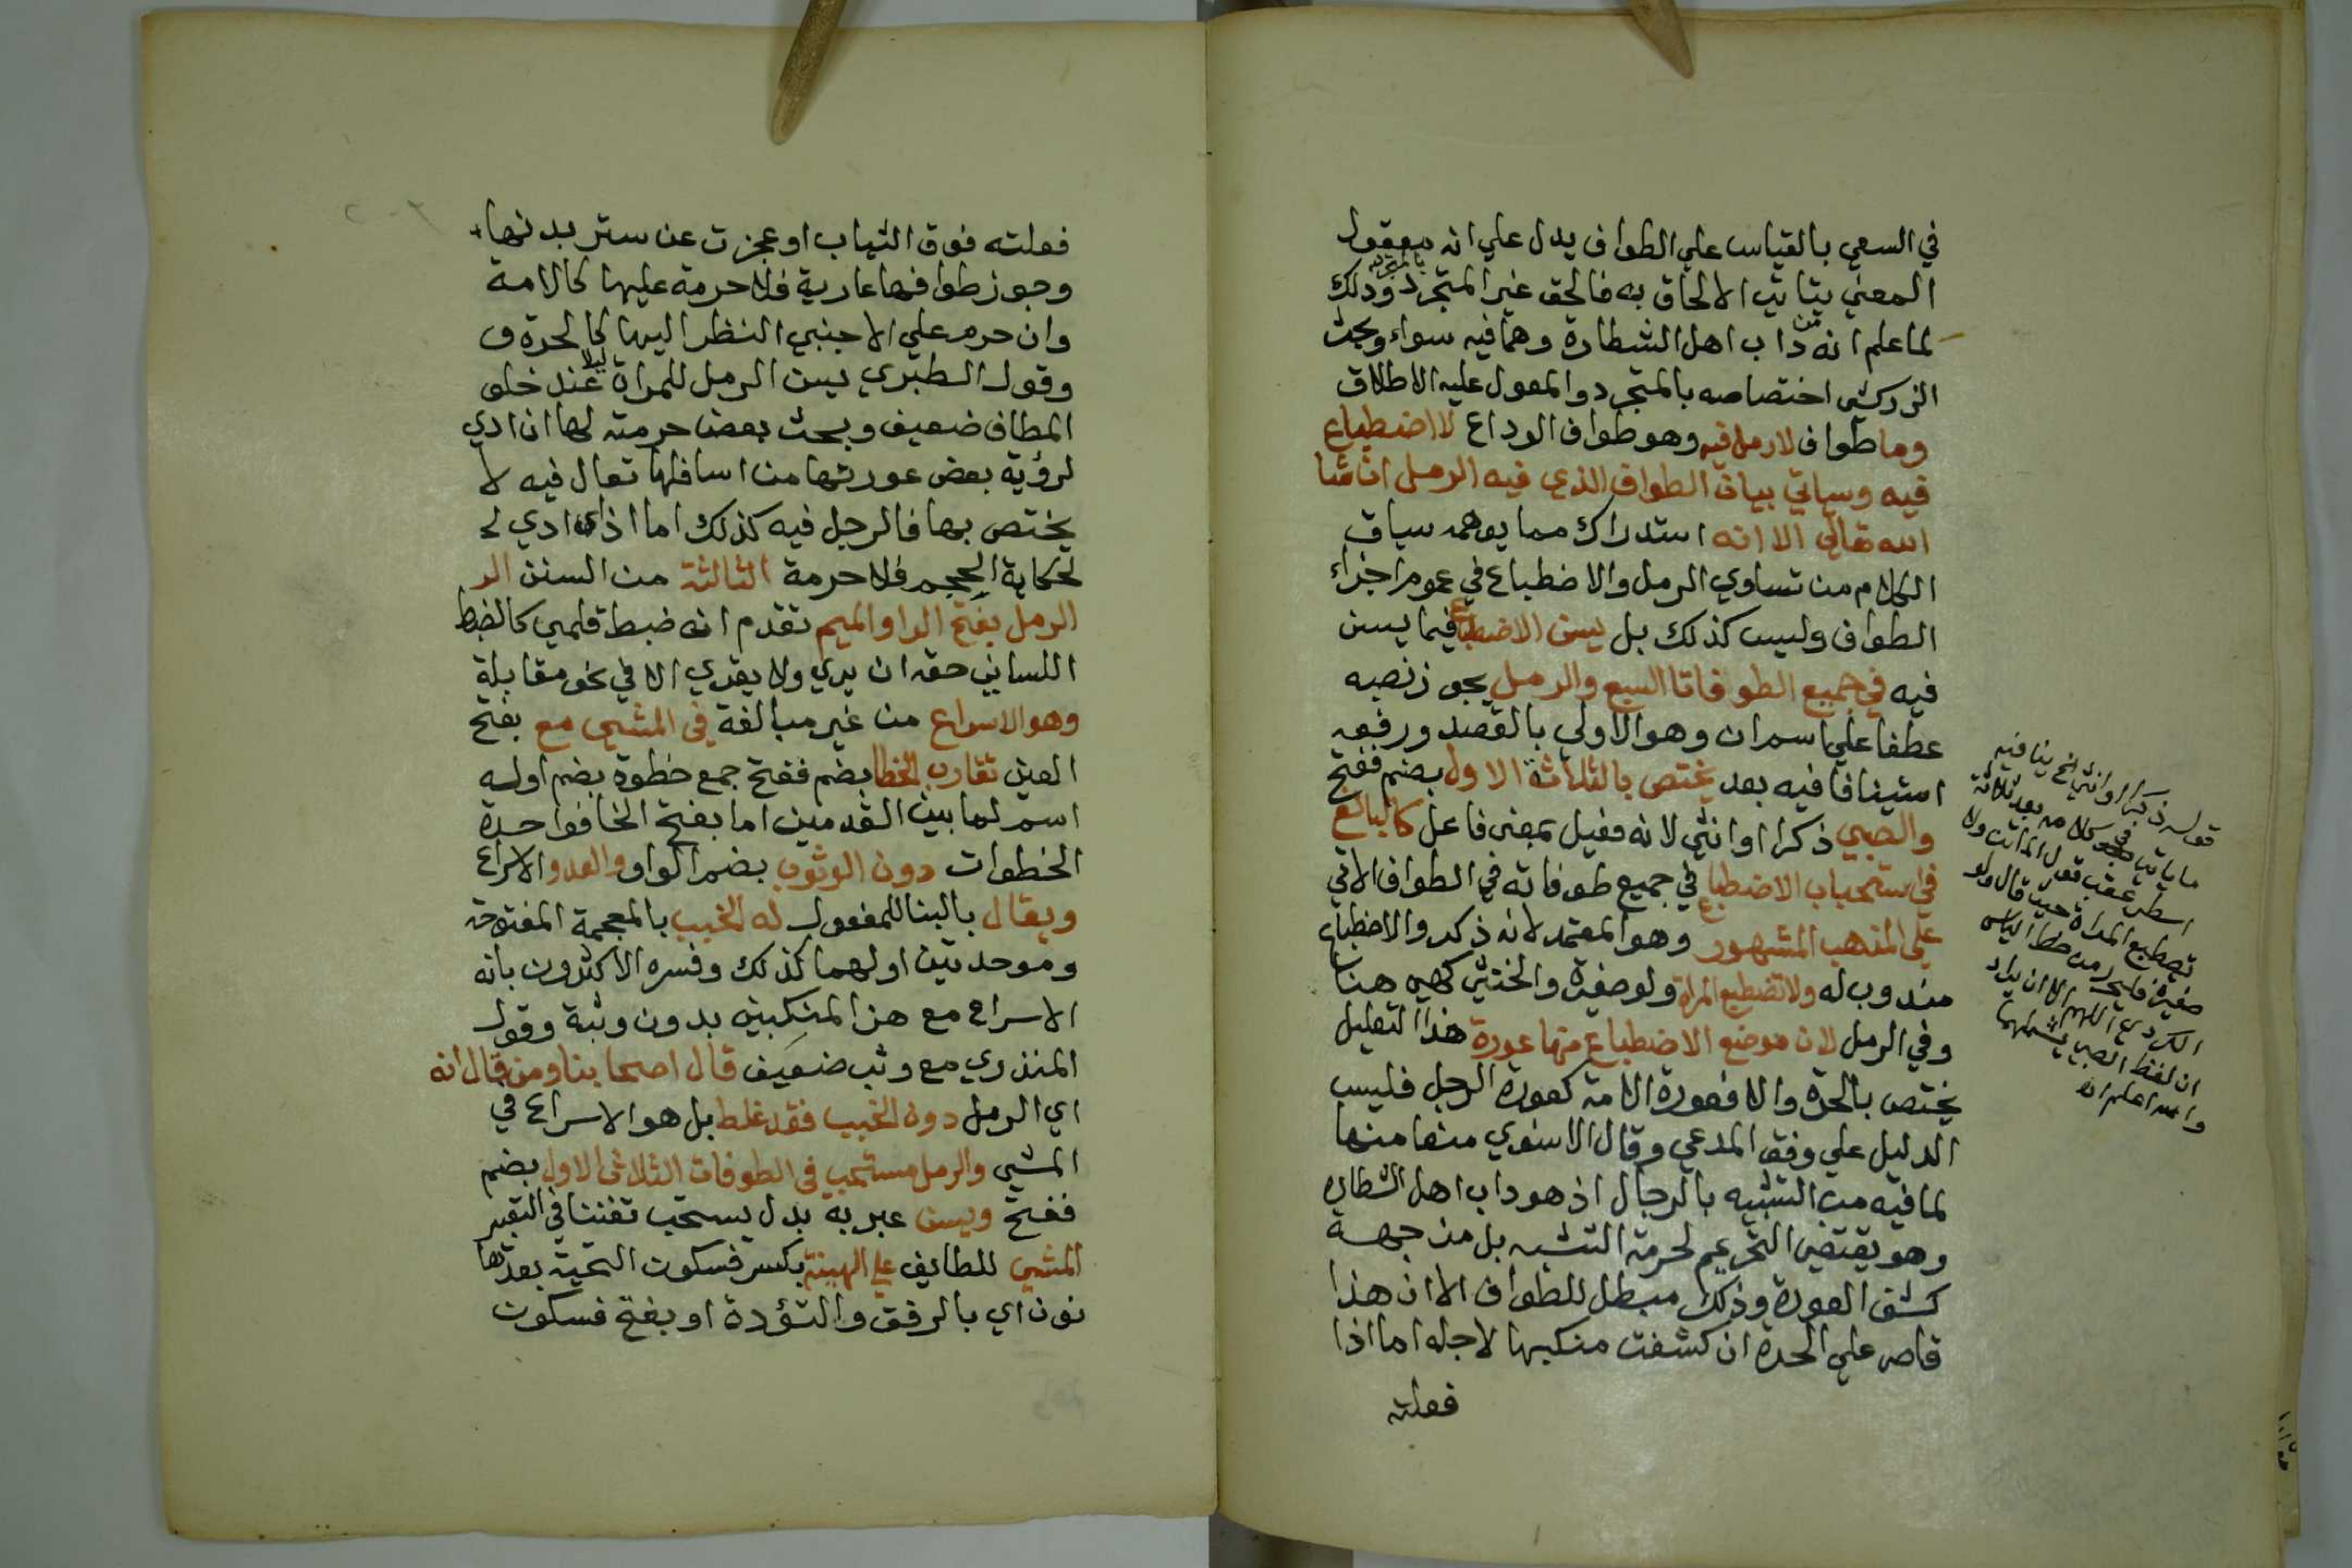 في السعي بالقياس علي الطواف يدل علي انه معقول
المعني يتاتي الالحاق به فالحق غير المتجرد بالمتجرد وذلك
لما علم انه من داب اهل الشطارة وهما فيه سواء وبحث
الزركشي اختصاصه بالمتجرد والمعول عليه الاطلاق
وما طواف لا رمل فيه وهو طواف الوداع لا اضطباع
فيه وسياتي بيان الطواف الذي فيه الرمل ان شا
الله تعالي الا انه استدراك مما يوهمه سياق
الكلام من تساوي الرمل والاضطباع في عموم اجزاء
الطواف وليس كذلك بل يسن الاضطباع فيما يسن
فيه في جميع الطوفات السبع والرمل يجوز نصبه
عطفا علي اسم ان وهو الاولي بالقصد ورفعه
استينافا فيه بعد يختص بالثلاثة الاول بضم ففتح
والصبي ذكرا او انثي لانه فعيل بمعني فاعل كالبالغ
في استحباب الاضطباع في جميع طوفاته في الطواف الاتي
علي المذهب المشهور وهو المعتمد لانه ذكر والاضطباع
مندوب له ولا تضطبع المراة ولو صغيرة والخنثي كهي هنا
وفي الرمل لان موضع الاضطباع منها عورة هذا التعليل
يختص بالحرة والا فعورة الامة كعورة الرجل فليس
الدليل علي وفق المدعي وقال الاسنوي منعا منها
لما فيه من التشبيه بالرجال اذ هو داب اهل الشطارة
وهو يقتضي التحريم لحرمة التشبه بل من جهة
كشف العورة وذلك مبطل للطواف الا ان هذا
قاصر علي الحرة ان كشفت منكبها لاجله اما اذا
فعلته
قوله ذكرا او انثي الخ ينافيه
ما ياتي في كلامه بعد ثلاثة
اسطر عقب قول الماتن ولا
تضطبع المراة حيث قال ولو
صغيرة
اللهم الا ان يراد
ان لفظ الصبي يشملهما
والله اعلم
فعلته فوق الثياب او عجزت عن ستر بدنها
وجوز طوافها عارية فلا حرمة عليها كالامة
وان حرم علي الاجنبي النظر اليها كالحرة
وقول الطبري يسن الرمل للمراة ليلا عند خلو
المطاف ضعيف وبحث بعض حرمته لها ان ادي
لرؤية بعض عورتها من اسافلها تعال فيه لا
يختص بها فالرجل فيه كذلك اما اذا ادي لـ
لحكاية الحجم فلا حرمة الثالثة من السنن الر
الرمل بفتح الرا والميم تقدم انه ضبط قلمي كالضبط
اللساني حقه ان يري ولا يقري الا في نحو مقابلة
وهو الاسراع من غير مبالغة في المشي مع بفتح
العين تقارب الخطا بضم ففتح جمع خطوة بضم اوله
اسم لما بين القدمين اما بفتح الخا فواحدة
الخطوات دون الوثوب بضم الواو والعدو الاسراع
ويقال بالبنا للمفعول له الخبب بالمعجمة المفتوحة
وموحدتين اولهما كذلك وفسره الاكثرون بانه
الاسراع مع هز المنكبين بدون وثبة وقول
المنذري مع وثب ضعيف قال اصحابنا ومن قال انه
اي الرمل دون الخبب فقد غلط بل هو الاسراع في
المشي والرمل مستحب في الطوفات الثلاث الاول بضم
ففتح ويسن عبر به بدل يستحب تفننا في التعبير
المشي للطايف علي الهينة بكسر فسكون التحتية بعدها
نون اي بالرفق والتؤدة او بفتح فسكون